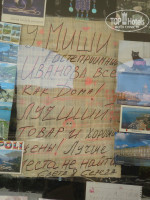 TOP Hotels
У МИШИ
ГОСТЕПРИИМН
ИВАНОВА ВСЕ
КАК ДОМА!
ЛУЧШИЙ
ТОВАР И ХОРОШИ
ЦЕНЫ ЛУЧШЕ
МЕСТО НЕ НАЙТИ
POLI